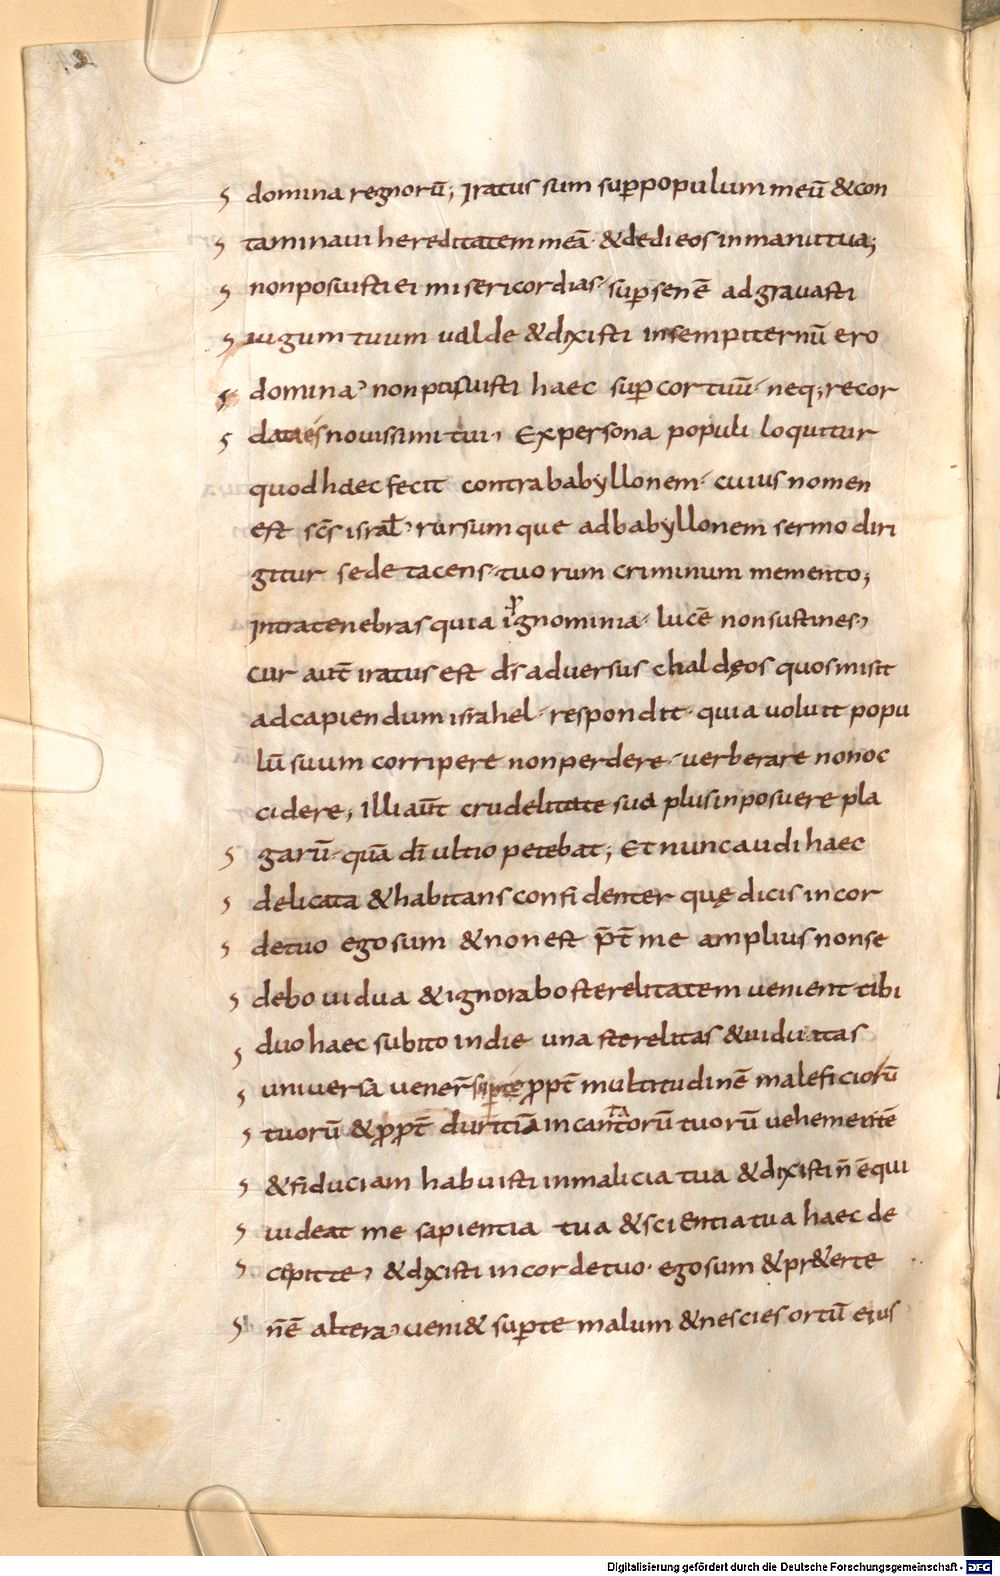 domina regnorū; Iratus sum sup̄ populum meū & con
taminaui hereditatem meā· & dedi eos in manu tua;
non posuisti ei misericordias· sup̄ senē adgrauasti
iugum tuum ualde & dixisti in sempiternū ero
domina· non posuisti haec sup̄ cor tuū· neq; recor
data es nouissimi tui· Ex persona populi loquitur
quod haec fecit contra babyllonem· cuius nomen
est sc̄s israł· rursumque ad babyllonem sermo diri
gitur sede tacens· tuorum criminum memento;
Intra tenebras quia ignominia· lucē non sustines·
cur aut̄ iratus est d̄s aduersus chaldęos quos misit
ad capiendum israhel· respondit· quia uoluit popu
lū suum corripere non perdere· uerberare non oc
cidere; Illi aut̄ crudelitate sua plus inposuere pla
garū· quā dī ultio petebat; Et nunc audi haec
delicata & habitans confidenter quę dicis in cor
de tuo ego sum & non est p̄t̄ me amplius non se
debo uidua & ignorabo sterelitatem uenient tibi
duo haec subito in die una sterelitas & uiduitas
uniuersa uener̄ sup̄ te pp̄t̄ multitudinē maleficiorū
tuorū & pp̄t̄ duritiā incantatorū tuorū uehementē
& fiduciam habuisti in malicia tua & dixisti n̄ ē qui
uideat me sapientia tua & scientia tua haec de
cepit te· & dixisti in corde tuo· ego sum & pr&er te
n̄ ē altera· ueni& sup̄ te malum & nescies ortū eius
Digitalisierung gefördert durch die Deutsche Forschungsgemeinschaft - DFG